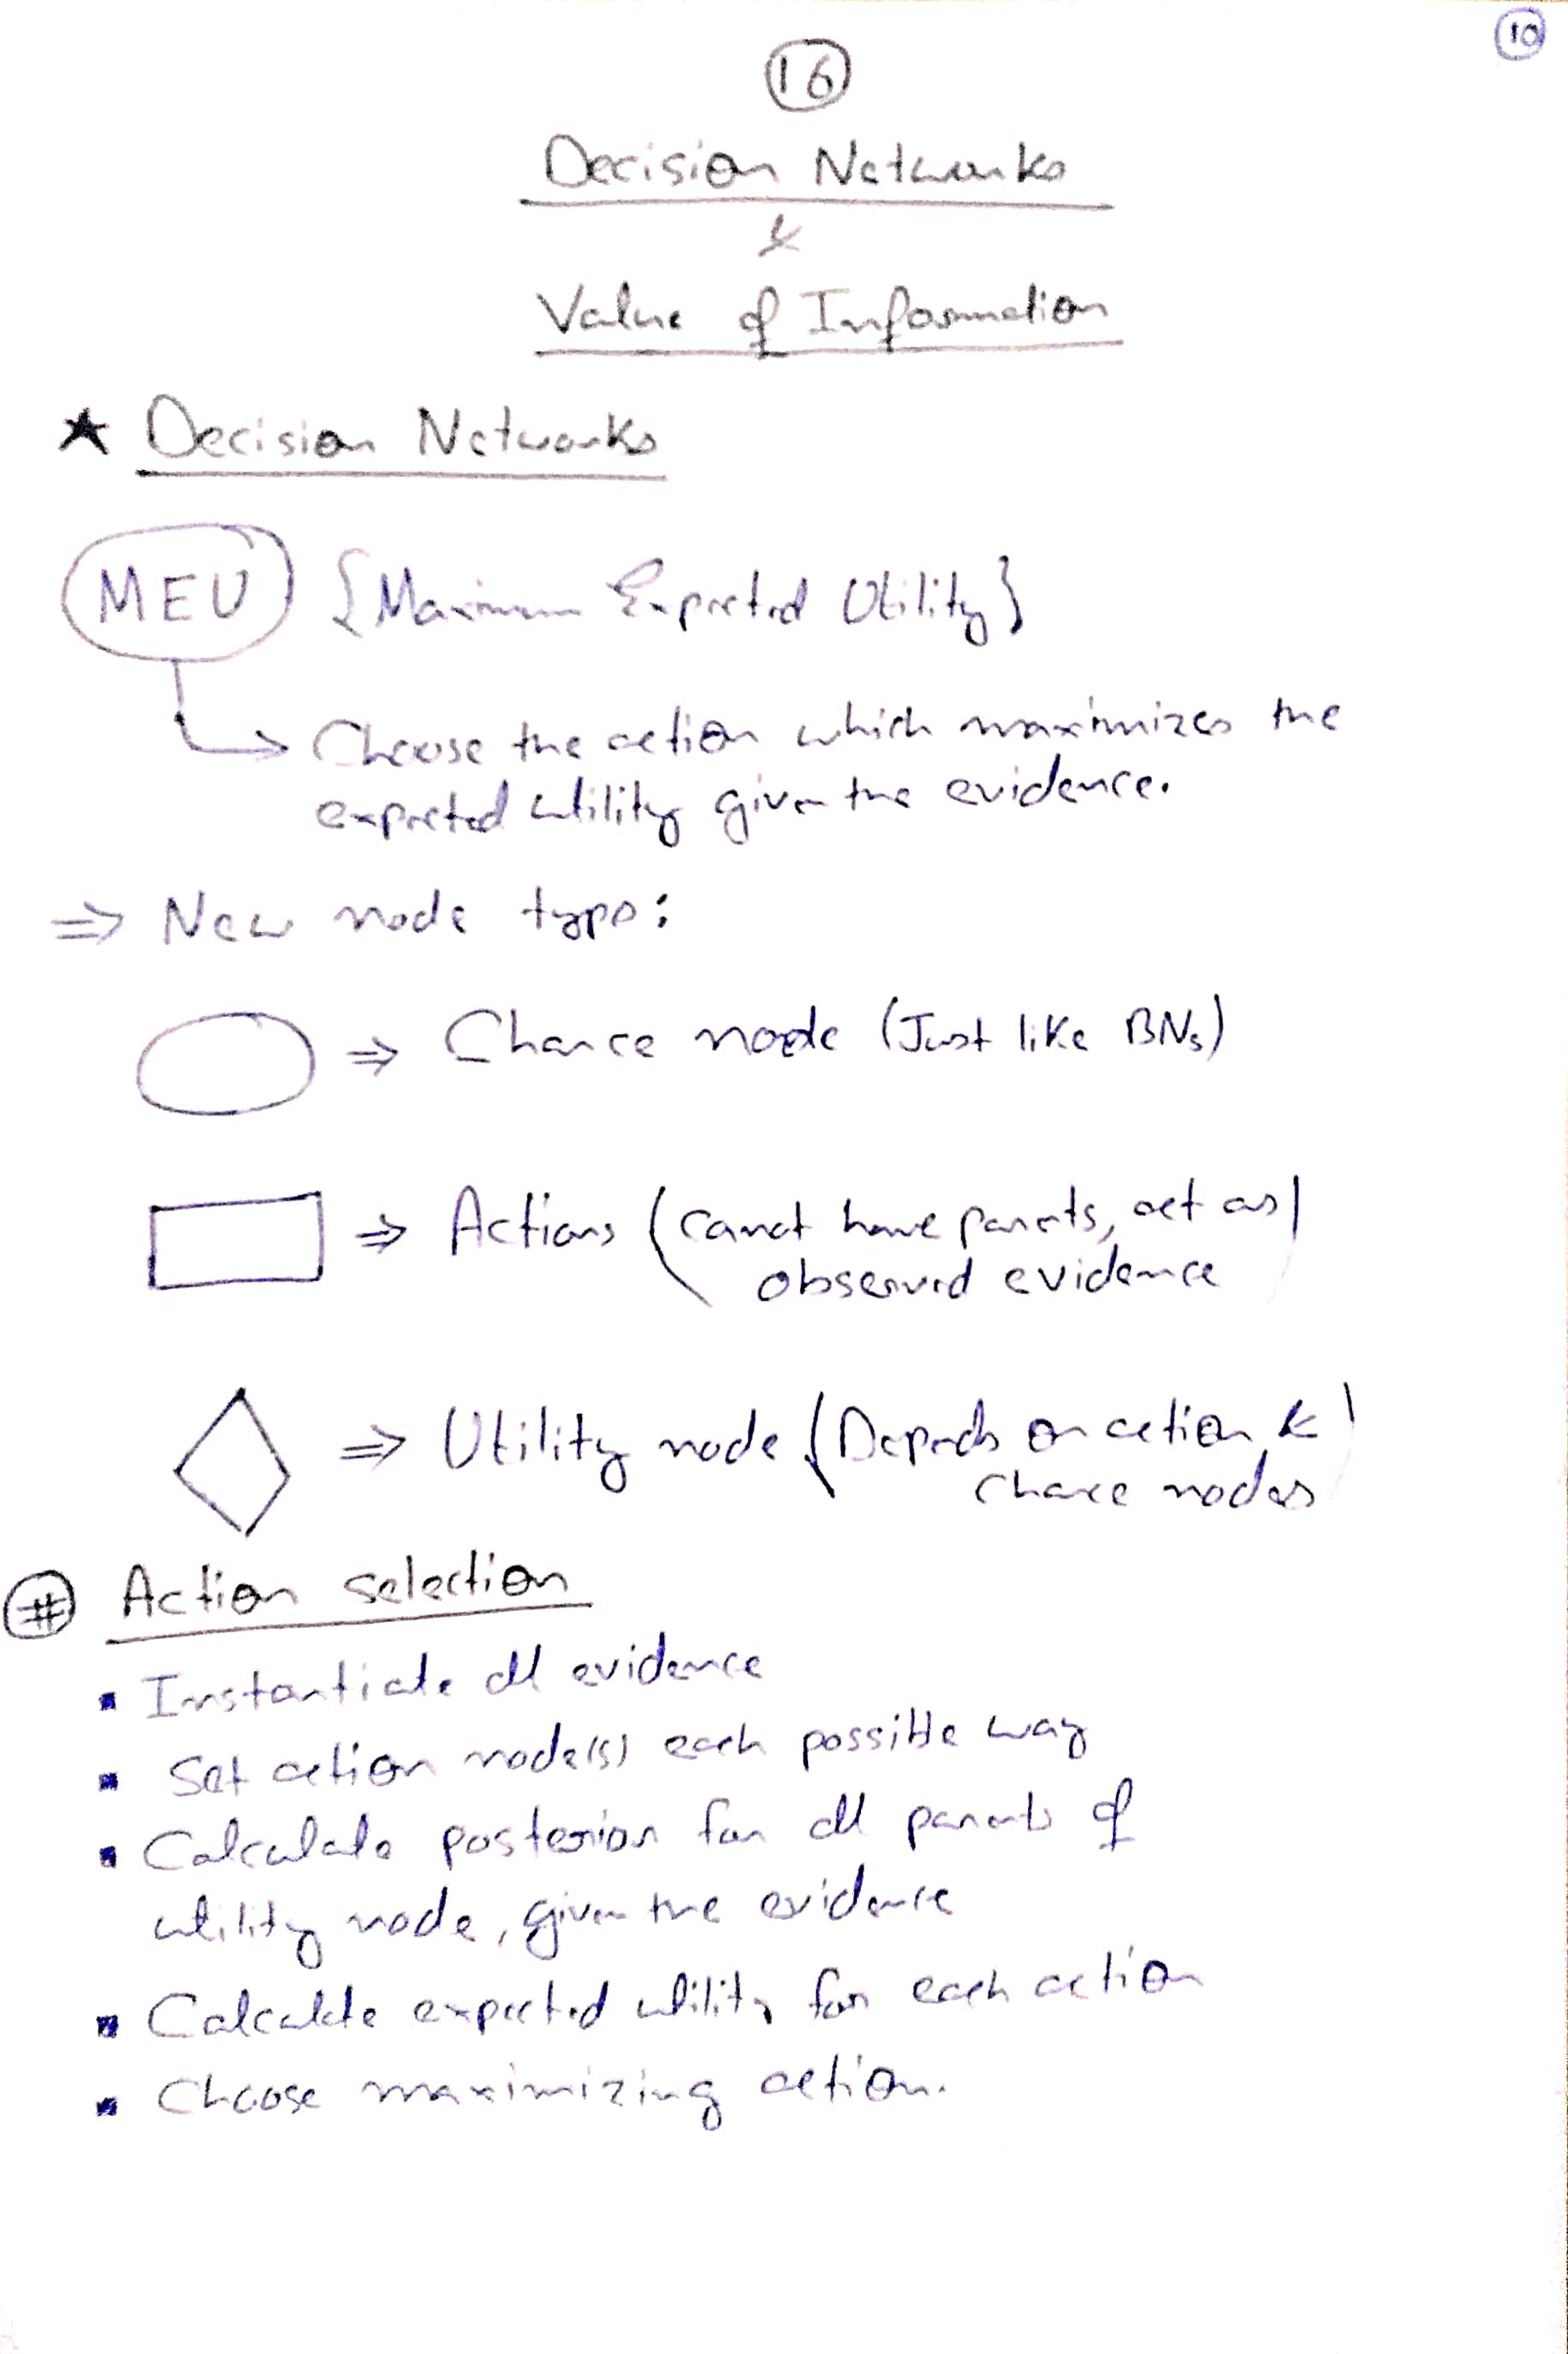 10
16
Decision Networks
&
Value of Information
★ Decision Networks
MEU {Maximum Expected Utility}
→ Choose the action which maximizes the
expected utility given the evidence.
⇒ New node type:
⇒ Chance node (Just like BNs)
⇒ Actions (cannot have parents, act as
observed evidence)
⇒ Utility node (Depends on action &
chance nodes)
# Action selection
▪ Instantiate all evidence
▪ Set action node(s) each possible way
▪ Calculate posterior for all parents of
utility node, given the evidence
▪ Calculate expected utility for each action
▪ Choose maximizing action.